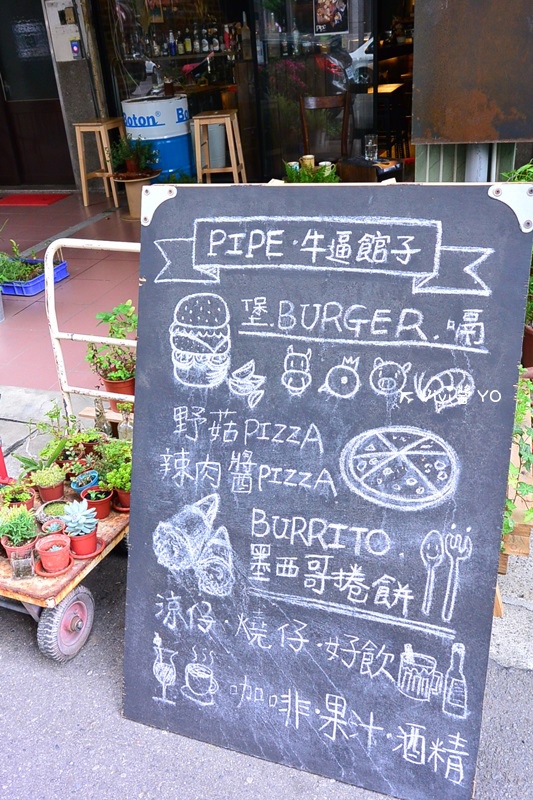 Boton
PIPE·牛逼館子
堡.BURGER.嗝
YO
野菇PIZZA
辣肉醬PIZZA
BURRITO.
墨西哥捲餅
涼仔·燒仔·好飲
咖啡·果汁·酒精